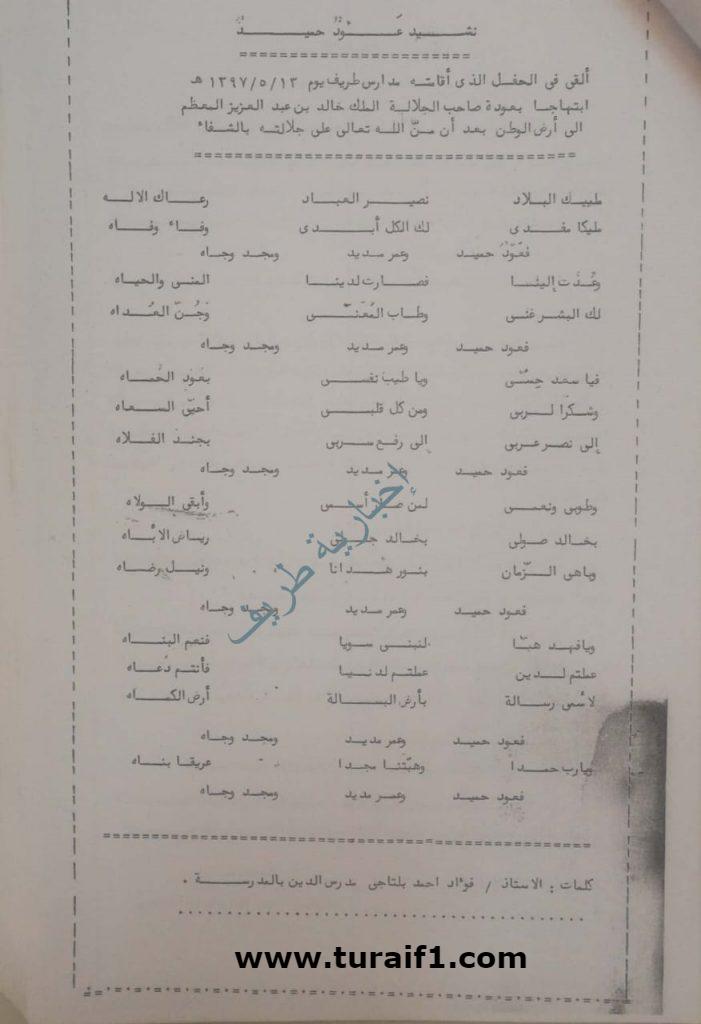 نشيد عَوْدٌ حميدٌ
ألقى فى الحفل الذى أقامته مدارس طريف يوم ١٣٩٧/٥/١٣ هـ
ابتهاجا بعودة صاحب الجلالة الملك خالد بن عبد العزيز المعظم
الى أرض الوطن بعد أن منّ الله تعالى على جلالته بالشفاء
طبيبك البلاد نصير العباد رعاك الاله
مليكا مفدى لك الكل أبدى وفاء وفاه
فعَوْدٌ حميد وعمر مديد ومجد وجاه
وعُدْت إلينا فصارت لدينا المنى والحياه
لك البشر غنى وطاب المُعَنّى وجُنّ العُداه
فعود حميد وعمر مديد ومجد وجاه
فيا سعد حِسّى ويا طيب نفسى بعَوْد الحُماه
وشكرا لربى ومن كل قلبى أحيّى السعاه
إلى نصر عربى الى رفع سربى بجند الفلاه
فعود حميد وعمر مديد ومجد وجاه
وطوبى ونعمى لمن أسمى وأبقى الولاه
بخالد صولى بخالد رياض الأُباه
وباهى الزّمان بنور هدانا ونيل رضاه
فعود حميد وعمر مديد ومجد وجاه
ويافهد هبّا لنبنى سويا فنعم البناه
عملتم لدين عملتم لدنيا فأنتم دُعاه
لأسمى رسالة بأرض البسالة أرض الكماه
فعود حميد وعمر مديد ومجد وجاه
ويارب حمدا وهبّتنا مجدا عريقا بناه
فعود حميد وعمر مديد ومجد وجاه
كلمات : الاستاذ / فؤاد احمد بلتاجى مدرس الدين بالمدرسة .
إخبارية طريف
www.turaif1.com